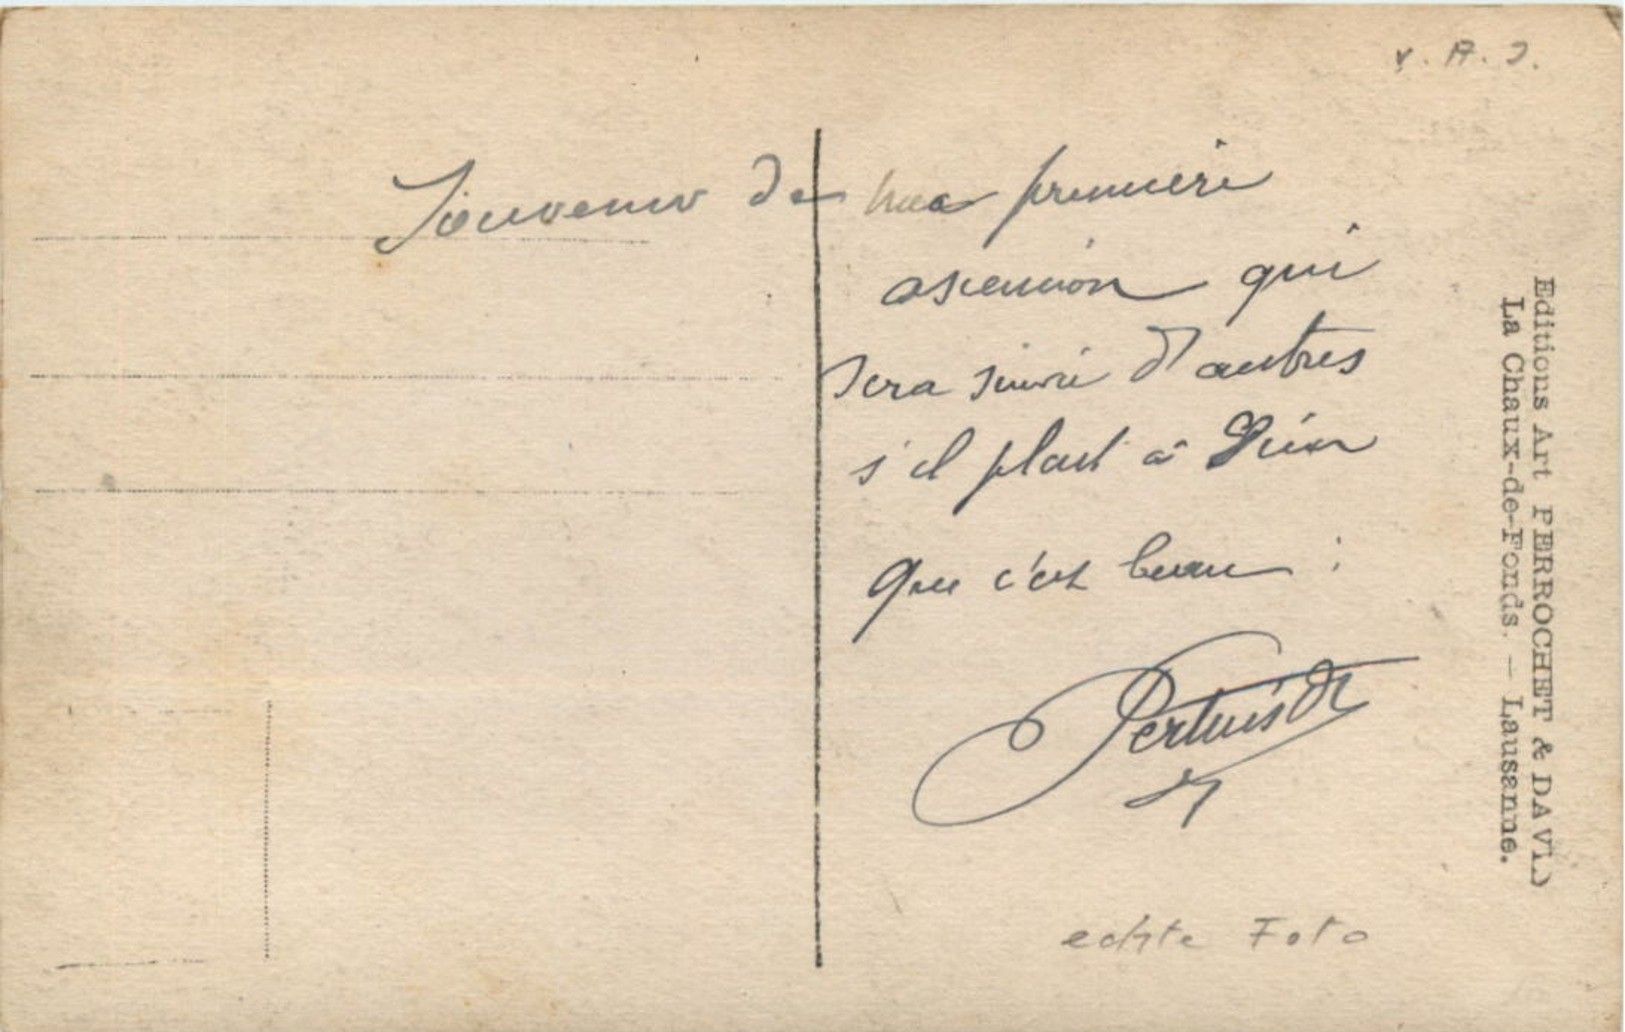 Souvenir de ma première
ascension qui
sera suivie d'autres
s'il plait à Dieu
que c'est beau :
echte Foto
Editions Art PERROCHET & DAVID
La Chaux-de-Fonds. — Lausanne.